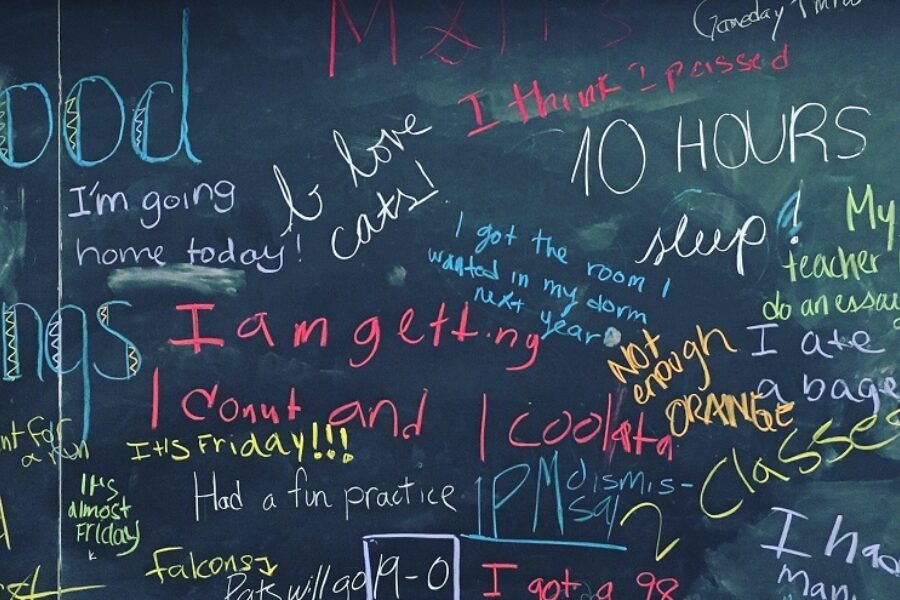 Gameday
I think I passed
ood
I'm going
home today!
I love
cats!
10 HOURS
sleep!
My
teacher
do an essay
I got the room I
wanted in my dorm
next year
ngs
I am getting
1 Donut and
1 coolata
Not
enough
ORANGE
I ate
a bage
nt for
a run
It's Friday!!!
It's
almost
Friday
Had a fun practice
1PM dismis-
sal
2 Classes
Falcons
Pats will go 19-0
I got a 98
I ha
man